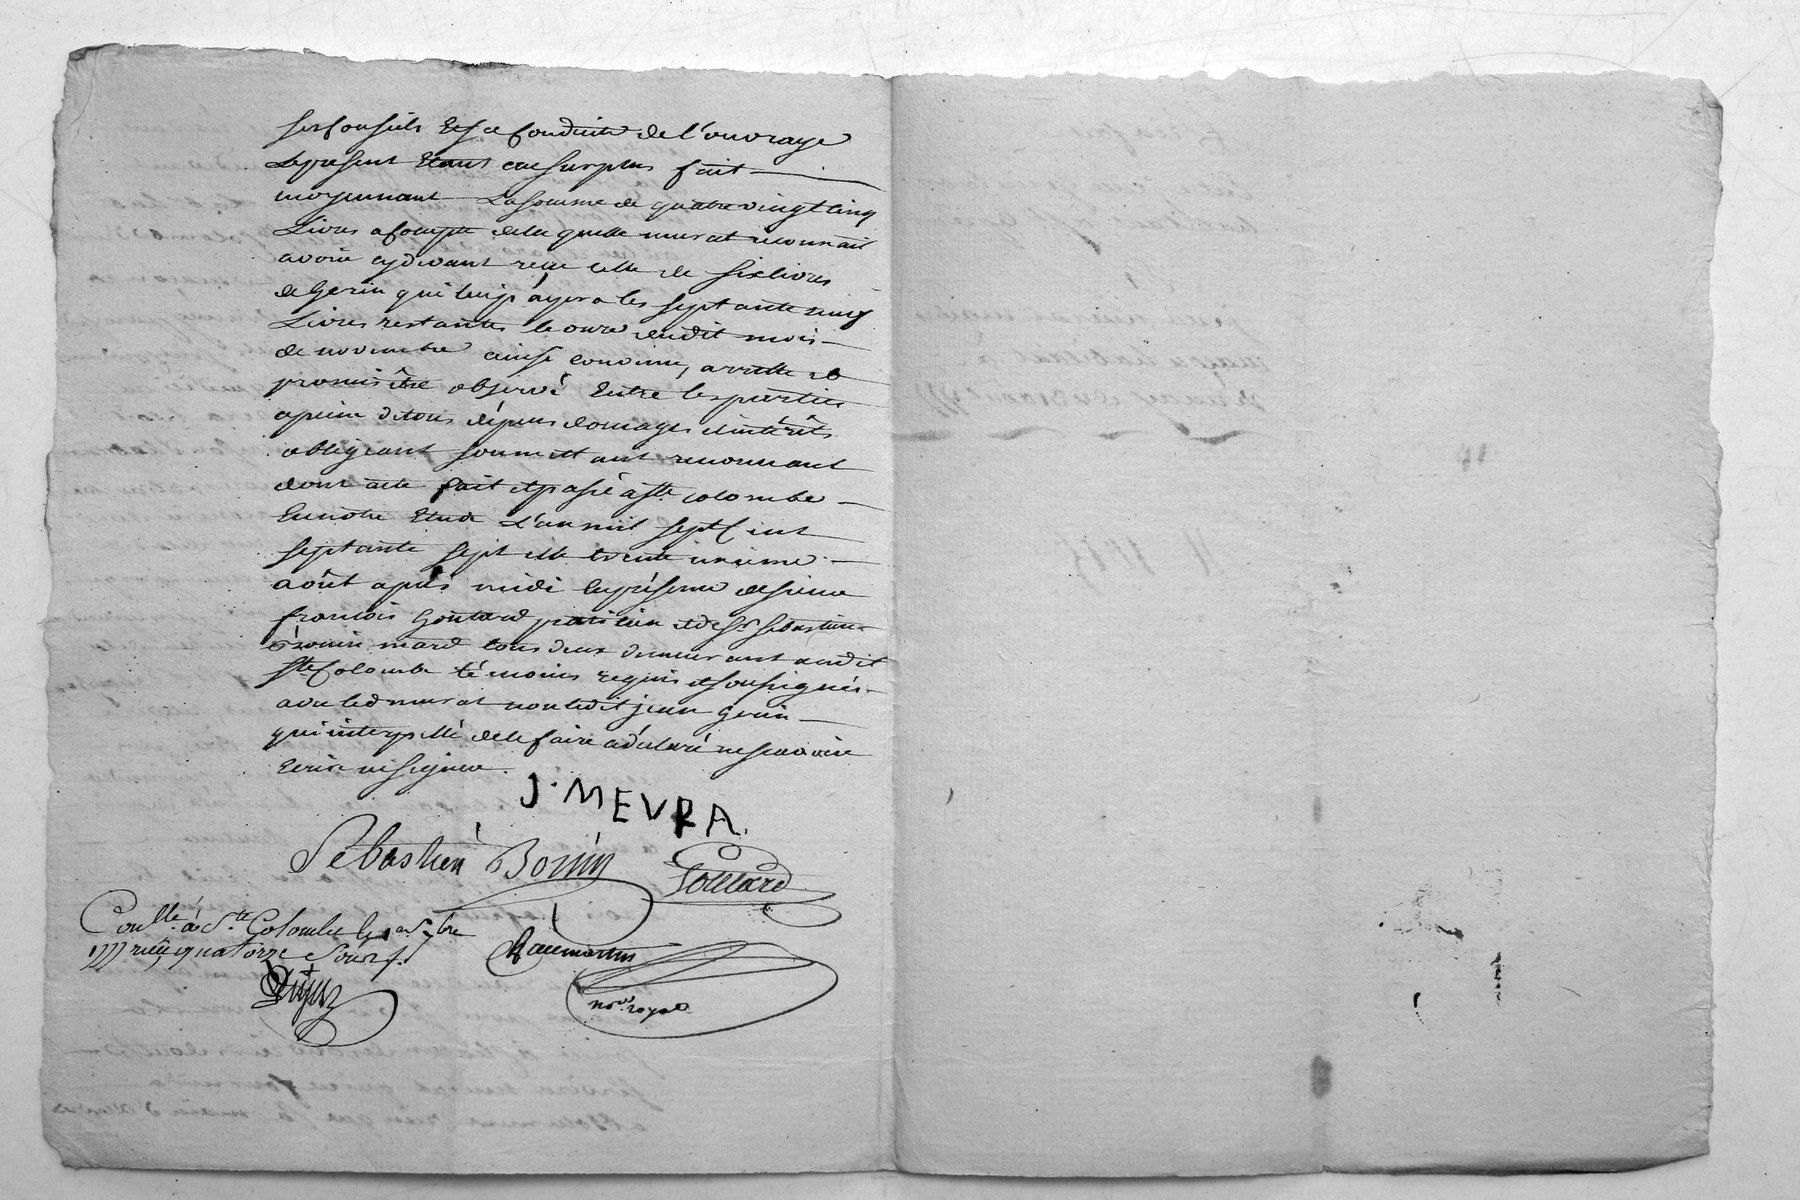 ses Conseils Et sa Conduite de l'ouvrage
Le present Etant au surplus fait
moyennant La somme de quatre vingt cinq
Livres a Compte de la quelle murat reconnait
avoir cydevant reçu celle de six livres
de Gerin qui luy payera les septante neuf
Livres restantes le onze dudit mois
de novembre ainsi convenu, arrette et
promis être observé Entre les parties
a peine de tous dépens domages et intérêts
obligeant soumettant renonçant
dont acte fait et passé a Ste Colombe
En notre Etude L'an mil sept Cent
septante sept et le trente unieme
août après midi En présence de sieur
francois Goutard praticien et de Sr sebastien
Bonin mard tous deux demeurant audit
Ste Colombe témoins requis et soussignés
avec led murat non ledit jean Gerin
qui interpellé de le faire a déclaré ne scavoir
Ecrire ni signer.
J. MEVRA.
Sebastien Bonin Goutard
Conllé à Ste Colombe le 7bre
1777 reçu quatorze sous
nore royal